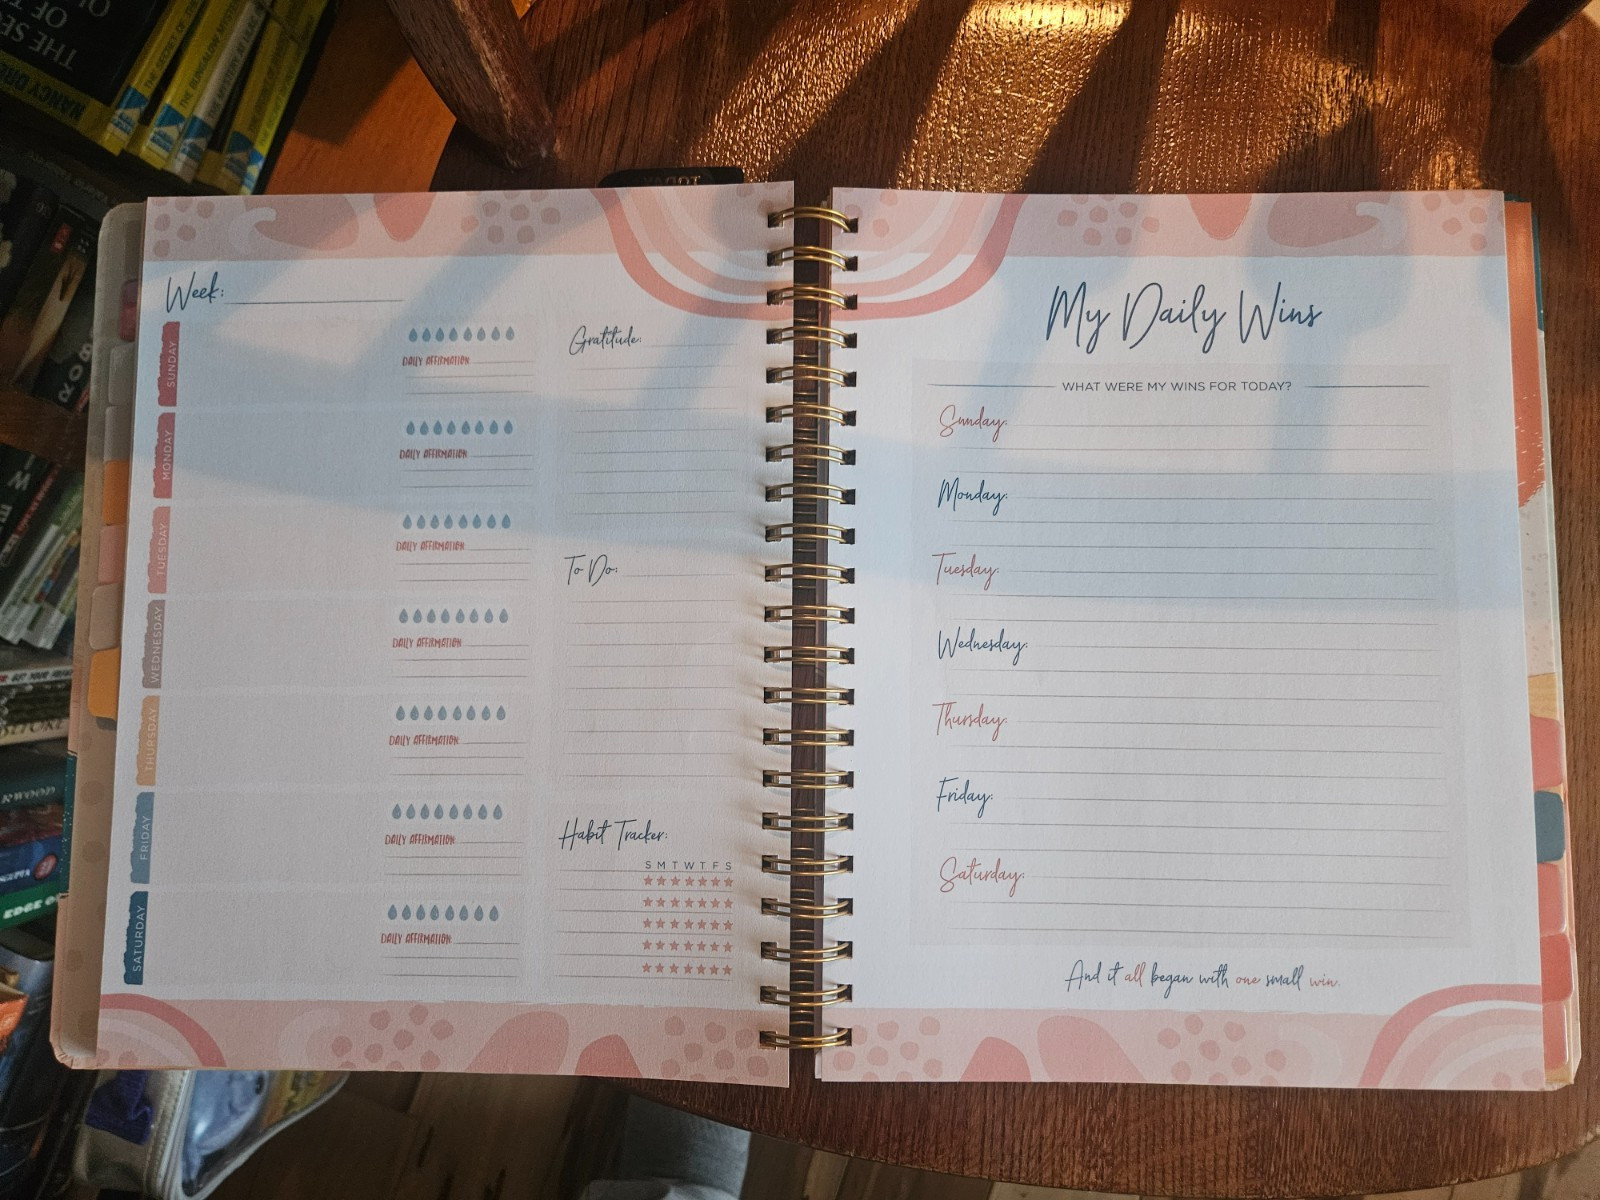 THE SE
OF T
NANCY DRE
TODAY
Week:
SUNDAY
DAILY AFFIRMATION
MONDAY
DAILY AFFIRMATION
TUESDAY
DAILY AFFIRMATION
WEDNESDAY
DAILY AFFIRMATION
THURSDAY
DAILY AFFIRMATION
FRIDAY
DAILY AFFIRMATION
SATURDAY
DAILY AFFIRMATION
Gratitude:
To Do:
Habit Tracker:
S M T W T F S
My Daily Wins
WHAT WERE MY WINS FOR TODAY?
Sunday:
Monday:
Tuesday:
Wednesday:
Thursday:
Friday:
Saturday:
And it all began with one small win.
RWOOD
GUPTA
EDGE O